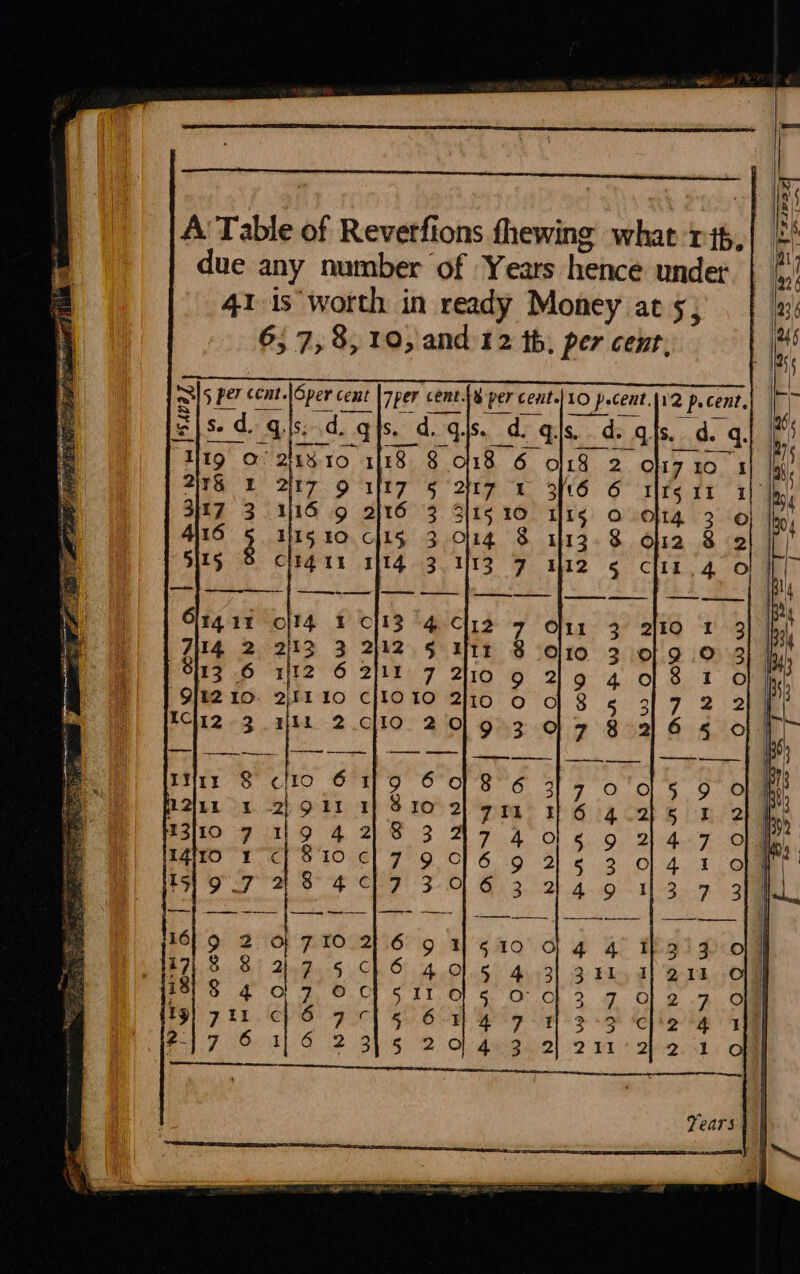 A Table of Reverſions ſhewing what 1 ℔.
due any number of Years hence under
41 is worth in ready Money at 5,
6, 7, 8, 10, and 12 ℔. per cent,
Years 5 per cent. 6per cent 7per cent. 8 per cent. 10 p.cent. 12 p.cent.
s. d. q. s. d. q s. d. q. s. d. q. s. d. q. s. d. q.
1 19 0 2 18 10 1 18 8 0 18 6 0 18 2 0 17 10 1
2 18 1 2 17 9 1 17 5 2 17 1 3 16 6 1 15 11 1
3 17 3 1 16 9 2 16 3 3 15 10 1 15 0 0 14 3 0
4 16 5 1 15 10 0 15 3 0 14 8 1 13 8 0 12 8 2
5 15 8 0 14 11 1 14 3 1 13 7 1 12 5 0 11 4 0
6 14 11 0 14 1 0 13 4 0 12 7 0 11 3 2 10 1 3
7 14 2 2 13 3 2 12 5 1 11 8 0 10 3 0 9 0 3
8 13 6 1 12 6 2 11 7 2 10 9 2 9 4 0 8 1 0
9 12 10 2 11 10 0 10 10 2 10 0 0 8 5 3 7 2 2
10 12 3 1 11 2 0 10 2 0 9 3 0 7 8 2 6 5 0
11 11 8 0 10 6 1 9 6 0 8 6 3 7 0 0 5 9 0
12 11 1 2 9 11 1 8 10 2 7 11 1 6 4 2 5 1 2
13 10 7 1 9 4 2 8 3 2 7 4 0 5 9 2 4 7 0
14 10 1 0 8 10 0 7 9 0 6 9 2 5 3 0 4 1 0
15 9 7 2 8 4 0 7 3 0 6 3 2 4 9 1 3 7 3
16 9 2 0 7 10 2 6 9 1 5 10 0 4 4 1 3 3 0
17 8 8 2 7 5 0 6 4 0 5 4 3 3 11 1 2 11 0
18 8 4 0 7 0 0 5 11 0 5 0 0 3 7 0 2 7 0
19 7 11 0 6 7 0 5 6 1 4 7 1 3 3 0 2 4 1
2- 7 6 1 6 2 3 5 2 0 4 3 2 2 11 2 2 1 0
Years